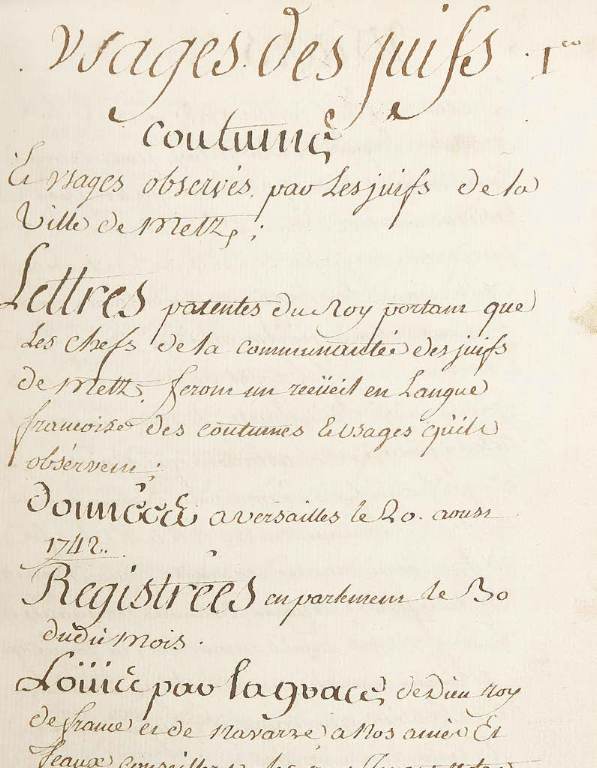 usages des juifs. 1eo
Coutumes
Et usages observés par Les juifs de la
Ville de Metz,;
Lettres patentes du Roy portant que
Les chefs de la communauté des juifs
de Metz. feront un recüeil en Langue
françoise des coutumes & usages qu'ils
observent;
Données a versailles le 20. aoust
1742.
Registrées en parlement le 30
dudit mois.
Loüis par la grace de Dieu Roy
de france et de Navarre a Nos amés Et
feaux Conseillers Les